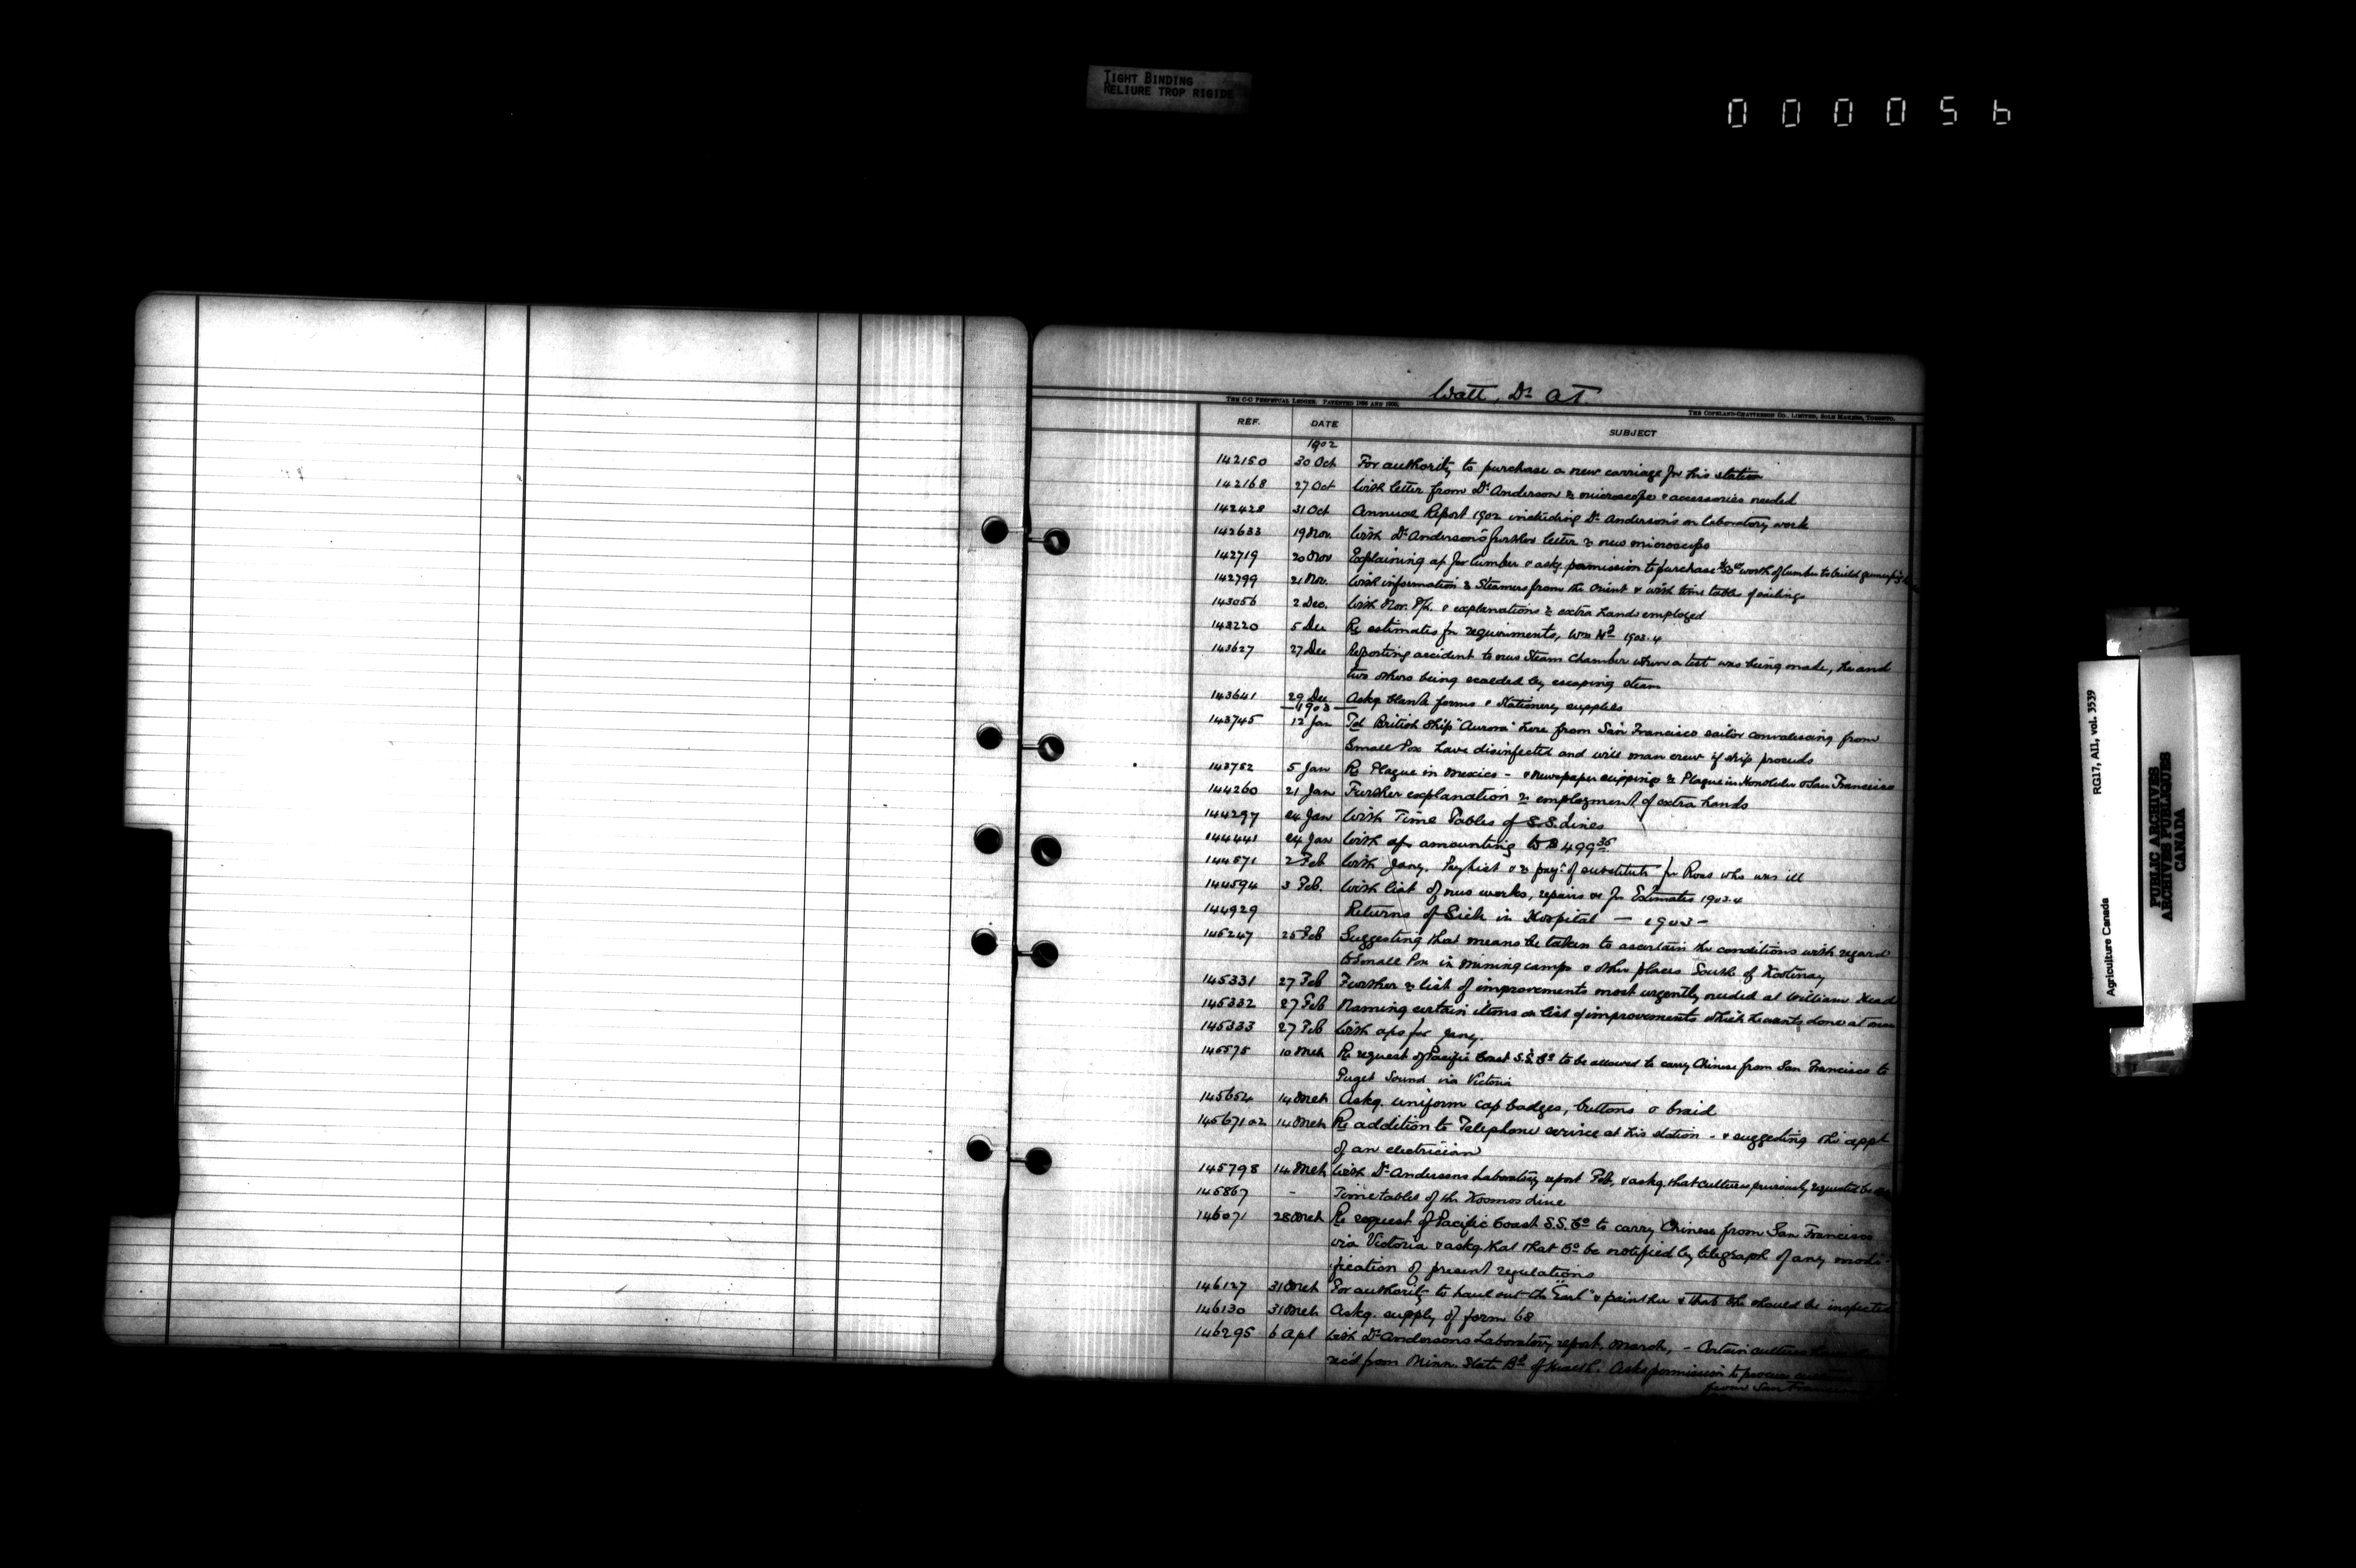 TIGHT BINDING
RELIURE TROP RIGIDE
000056
Watt, Dr A T.
THE C-C PERPETUAL LEDGER. PATENTED AND
THE COPELAND-CHATTERSON CO., LIMITED, SOLE MAKERS, TORONTO.
REF. DATE SUBJECT
1902
142150 30 Oct For authority to purchase a new carriage for his station
142168 27 Oct With letter from Dr Anderson re microscope & accessories needed
142428 31 Oct Annual Report 1902 including Dr Anderson's on Laboratory work
142633 19 Nov. With Dr Anderson's further letter re new microscope
142719 20 Nov Explaining for lumber & askg. permission to purchase worth of lumber to build
142799 21 Nov. With information re Steamers from the Orient & with time table of sailings
143056 2 Dec. With Nov. P/L. & explanations re extra hands employed
143220 5 Dec Re estimates for requirements, Wm Hd 1903.4
143627 27 Dec Reporting accident to new Steam Chamber when a test was being made, he and
two others being scalded by escaping steam
143641 29 Dec. Askg blank forms & stationery supplies
1903
143745 12 Jan Tel British Ship "Aurora" here from San Francisco sailor convalescing from
Small Pox have disinfected and will man crew if ship proceeds
143752 5 Jan Re Plague in Mexico - & newspaper clippings re Plague in Honolulu & San Francisco
144260 21 Jan Further explanation re employment of extra hands
144297 24 Jan With Time Tables of S.S. Lines
144441 24 Jan With amounting to $499.35
144571 2 Feb With Jany. Pay list & re pay't of substitute for Ross who was ill
144594 3 Feb. With list of new works, repairs &c for Estimates 1903.4
144929 Returns of Sick in Hospital — 1903 —
145247 25 Feb Suggesting that means be taken to ascertain the conditions with regard
to Small Pox in mining camps & other places South of Kootenay
145331 27 Feb Further re list of improvements most urgently needed at William Head
145332 27 Feb Naming certain items on list of improvements which he wants done at once
145333 27 Feb With for Jany.
145575 10 Mch Re request of Pacific Coast S.S. Co to be allowed to carry Chinese from San Francisco to
Puget Sound via Victoria
145654 14 Mch Askg. uniform cap badges, buttons & braid
145671 14 Mch Re addition to Telephone service at his station - & suggesting the appt
of an electrician
145798 14 Mch With Dr Andersons Laboratory report Feb, & askg that cultures previously requested be
145867 - Time tables of the Kosmos Line
146071 28 Mch Re request of Pacific Coast S.S. Co to carry Chinese from San Francisco
via Victoria & askg that that Co be notified by telegraph of any modi-
fication of present regulations
146127 31 Mch For authority to haul out the "Earl" & paint her & that she should be inspected
146130 31 Mch Askg. supply of form 68
146295 6 Apl With Dr Andersons Laboratory report, March, - Certain cultures
rec'd from Minn. State Bd of Health. Asks permission to procure
from San Francisco
Agriculture Canada RG17, AII, vol. 3539
PUBLIC ARCHIVES
ARCHIVES PUBLIQUES
CANADA